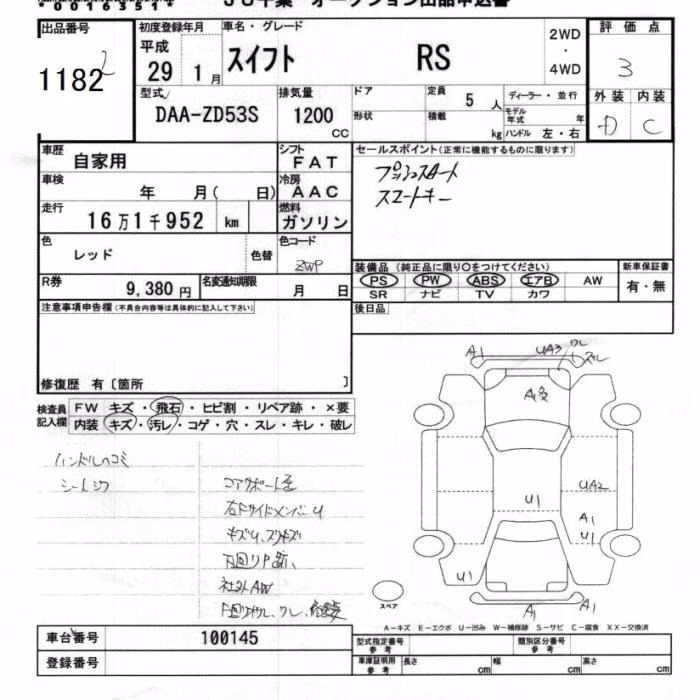 00163514
JU千葉 オークション出品申込書
出品番号 1182
初度登録年月 平成 29 1月
車名・グレード スイフト RS
2WD ・ 4WD
評価点 3
型式 DAA-ZD53S
排気量 1200 CC
ドア
形状
定員 5 人
積載 kg
ディーラー・並行
モデル年式 年
ハンドル 左・右
外装 内装
D C
車歴 自家用
シフト FAT
車検 年 月( 日)
冷房 AAC
走行 16万1千952 km
燃料 ガソリン
色 レッド 色替
色コード ZWP
R券 9,380 円
名変通知期限 月 日
セールスポイント(正常に機能するものに限ります)
プッシュスタート
スマートキー
装備品 (純正品に限り○をつけてください)
PS PW ABS エアB AW
SR ナビ TV カワ
新車保証書
有・無
後日品
注意事項申告欄(不具合内容等は具体的に記入して下さい)
修復歴 有〔箇所 〕
検査員記入欄
FW キズ・飛石・ヒビ割・リペア跡・×要
内装 キズ・汚レ・コゲ・穴・スレ・キレ・破レ
ハンドルヘコミ
シートシワ
コアサポート歪
右FサイドメンバーU
社外AW
A1 UA3 ワレ
UA2
U1
A1
U1
U1
A1 A1
スペア
A―キズ E―エクボ U―凹み W―補修跡 S―サビ C―腐食 XX―交換済
車台番号 100145
登録番号
型式指定番号 参考
類別区分番号 参考
車庫証明用 参考
長さ cm 幅 cm 高さ cm